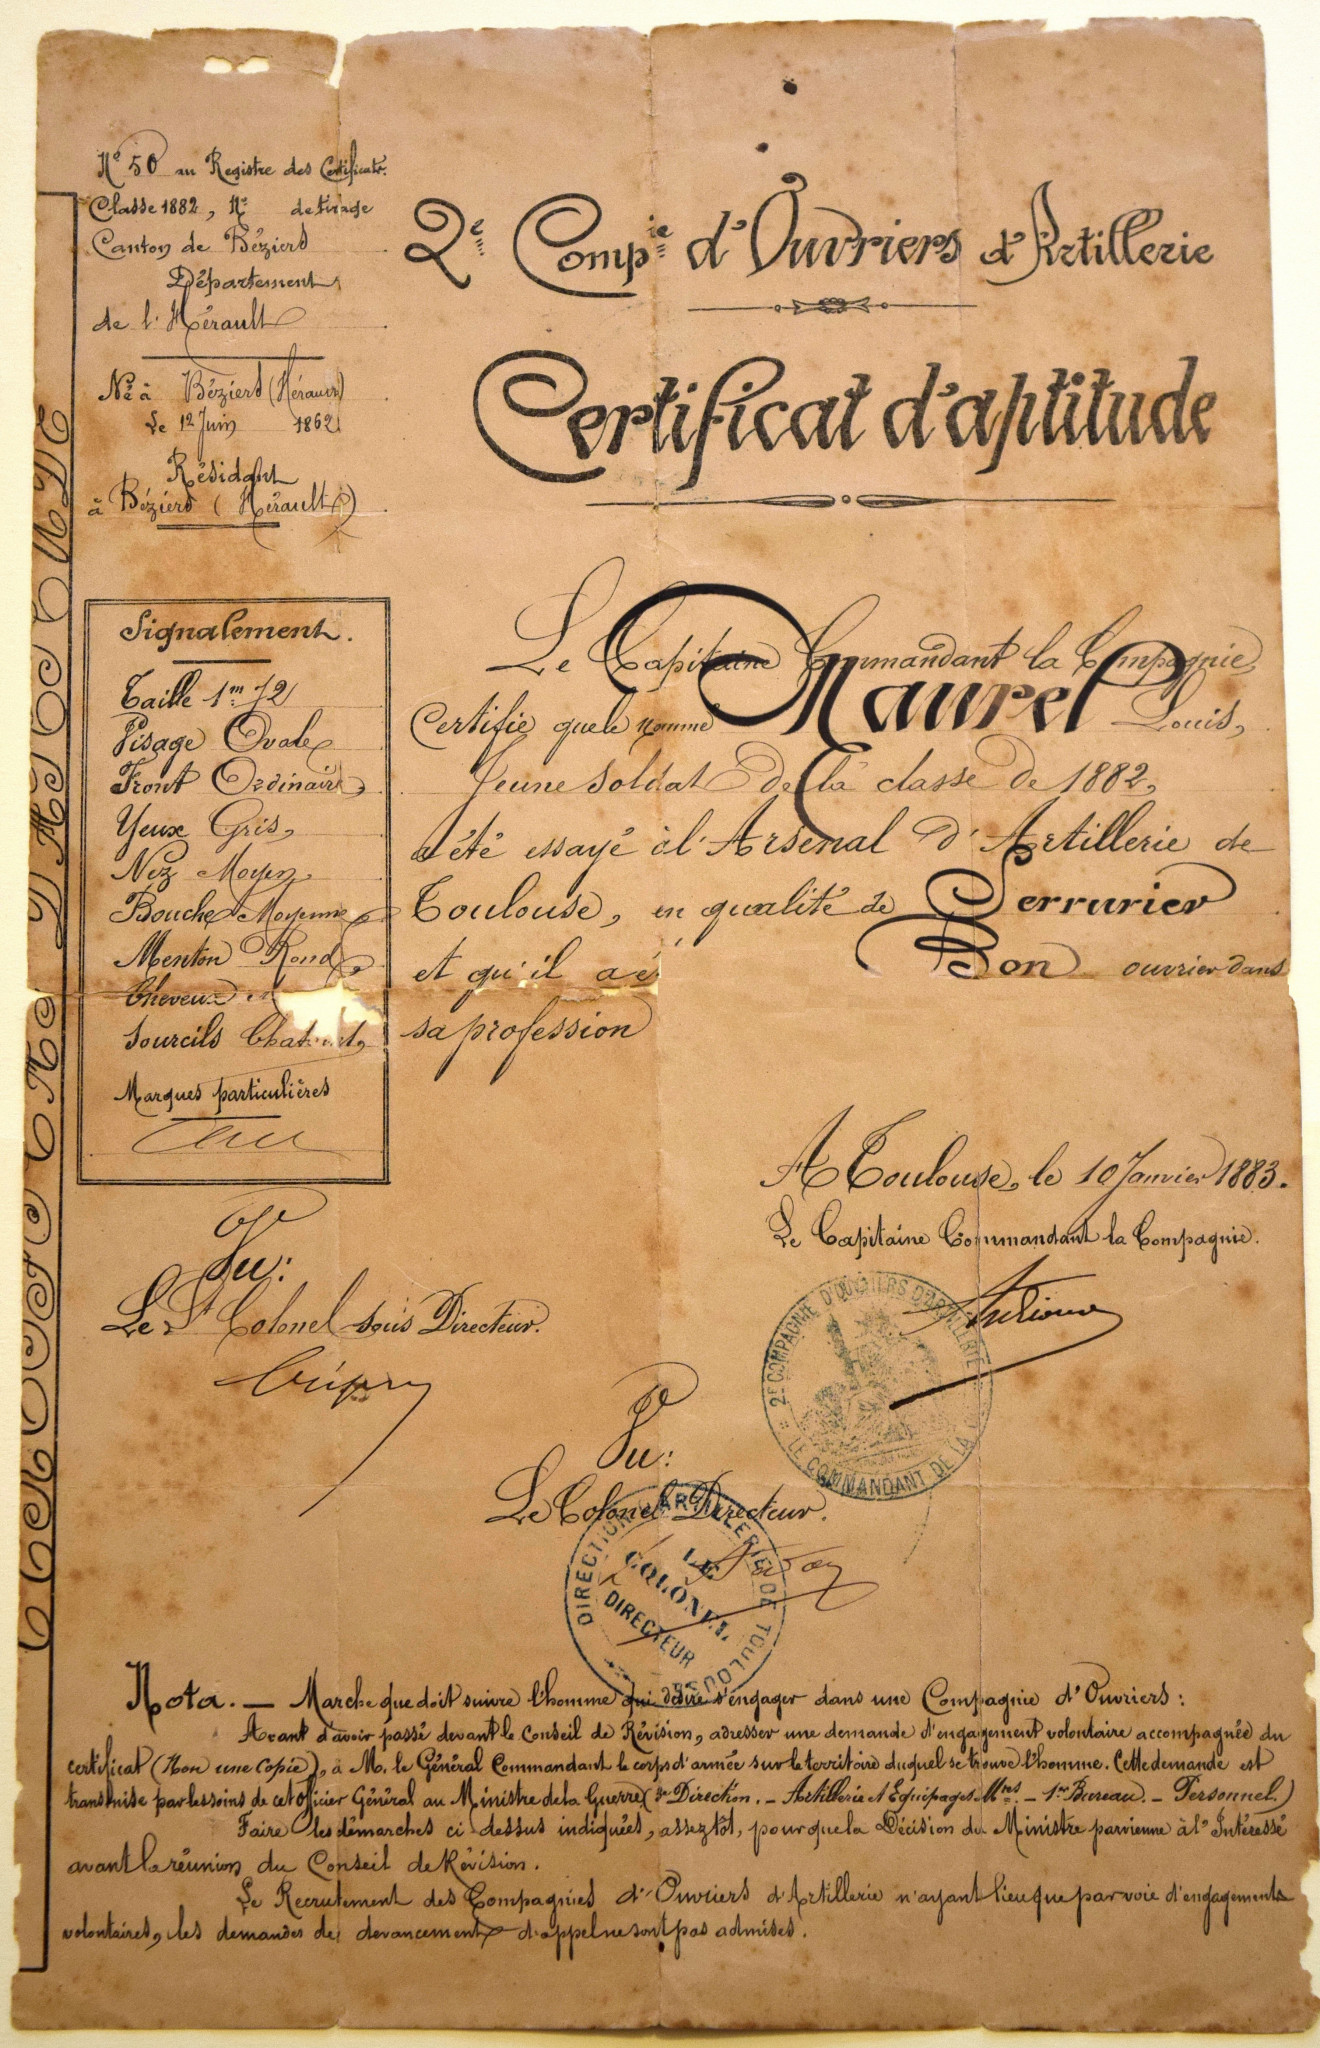 N° 50 au Registre des Certificats.
Classe 1882, N° de tirage
Canton de Béziers
Département
de l'Hérault
Né à Béziers (Hérault)
Le 12 Juin 1862
Résidant
à Béziers (Hérault)
2e Compie d'Ouvriers d'Artillerie
Certificat d'aptitude
Signalement.
Taille 1m 72
Visage Ovale
Front Ordinaire
Yeux Gris,
Nez Moyen
Bouche Moyenne
Menton Rond,
Cheveux et
Sourcils
Marques particulières
Le Capitaine Commandant la Compagnie,
certifie que le nommé Maurel Louis,
Jeune soldat de la classe de 1882,
a été essayé à l'Arsenal d'Artillerie de
Toulouse, en qualité de Serrurier
et qu'il a é Bon ouvrier dans
sa profession
A Toulouse, le 10 Janvier 1883.
Le Capitaine Commandant la Compagnie.
2e COMPAGNIE D'OUVRIERS D'ARTILLERIE
LE COMMANDANT DE LA
Vu:
Le Lt Colonel sous Directeur.
Vu:
Le Colonel Directeur.
DIRECTION D'ARTILLERIE DE TOULOUSE
LE
COLONEL
DIRECTEUR
Nota. — Marche que doit suivre l'homme qui désire s'engager dans une Compagnie d'Ouvriers:
Avant d'avoir passé devant le Conseil de Révision, adresser une demande d'engagement volontaire accompagnée du
certificat (Non une Copie), à M. le Général Commandant le corps d'armée sur le territoire duquel se trouve l'homme. Cette demande est
transmise par les soins de cet officier Général au Ministre de la Guerre (3e Direction. - Artillerie et Equipages Mres - 1er Bureau. - Personnel.)
Faire les démarches ci dessus indiquées, assez tôt, pour que la Décision du Ministre parvienne à l'Intéressé
avant la réunion du Conseil de Révision.
Le Recrutement des Compagnies d'Ouvriers d'Artillerie n'ayant lieu que par voie d'engagements
volontaires, les demandes de devancement d'appel ne sont pas admises.